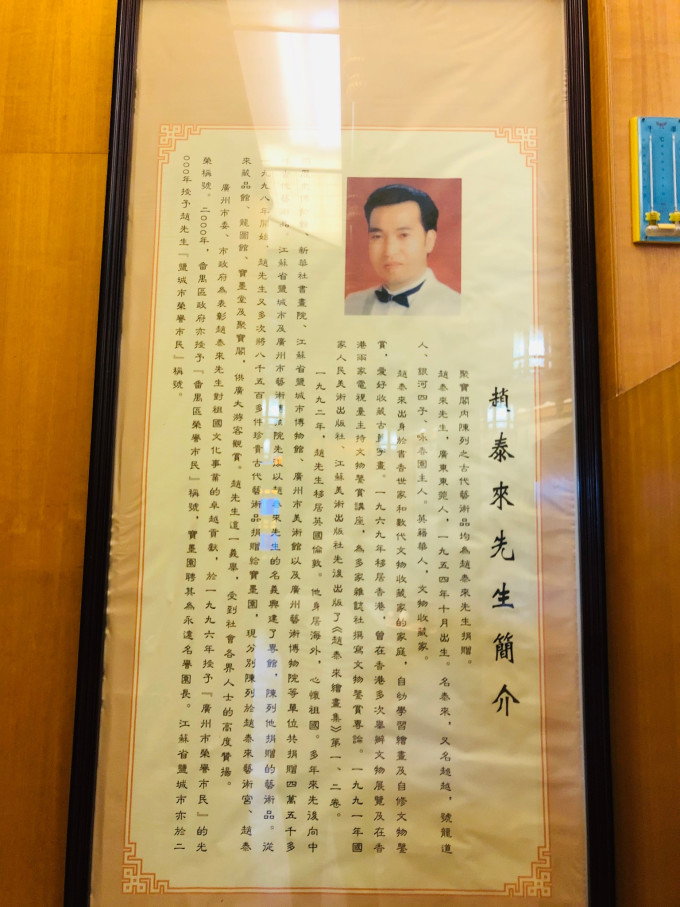 趙泰來先生簡介
聚寶閣內陳列之古代藝術品均為趙泰來先生捐贈。
趙泰來先生，廣東東莞人，一九五四年十月出生。名泰來，又名趙越，號龍道
人、銀河四子、咏春園主人。英籍華人，文物收藏家。
趙泰來出身於書香世家和數代文物收藏家的家庭，自幼學習繪畫及自修文物鑒
賞，愛好收藏古字畫。一九六九年移居香港，曾在香港多次舉辦文物展覽及在香
港兩家電視臺主持文物鑒賞講座，為多家雜誌社撰寫文物鑒賞專論。一九九一年國
家人民美術出版社、江蘇美術出版社先後出版了《趙泰來繪畫集》第一、二卷。
一九九二年，趙先生移居英國倫敦。他身居海外，心懷祖國。多年來先後向中
新華社書畫院、江蘇省鹽城市博物館、廣州市美術館以及廣州藝術博物院等單位共捐贈四萬五千多
江蘇省鹽城市及廣州市藝術博物院先後以趙泰來先生的名義興建了專館，陳列他捐贈的藝術品。從
一九九八年開始，趙先生又多次將八千五百多件珍貴古代藝術品捐贈給寶墨園，現分別陳列於趙泰來藝術宮、趙泰
來藏品館、龍圖館、寶墨堂及聚寶閣，供廣大游客觀賞。趙先生這一義舉，受到社會各界人士的高度贊揚。
廣州市委、市政府為表彰趙泰來先生對祖國文化事業的卓越貢獻，於一九九六年授予『廣州市榮譽市民』的光
榮稱號。二000年，番禺區政府亦授予『番禺區榮譽市民』稱號，寶墨園聘其為永遠名譽園長。江蘇省鹽城市亦於二
000年授予趙先生『鹽城市榮譽市民』稱號。